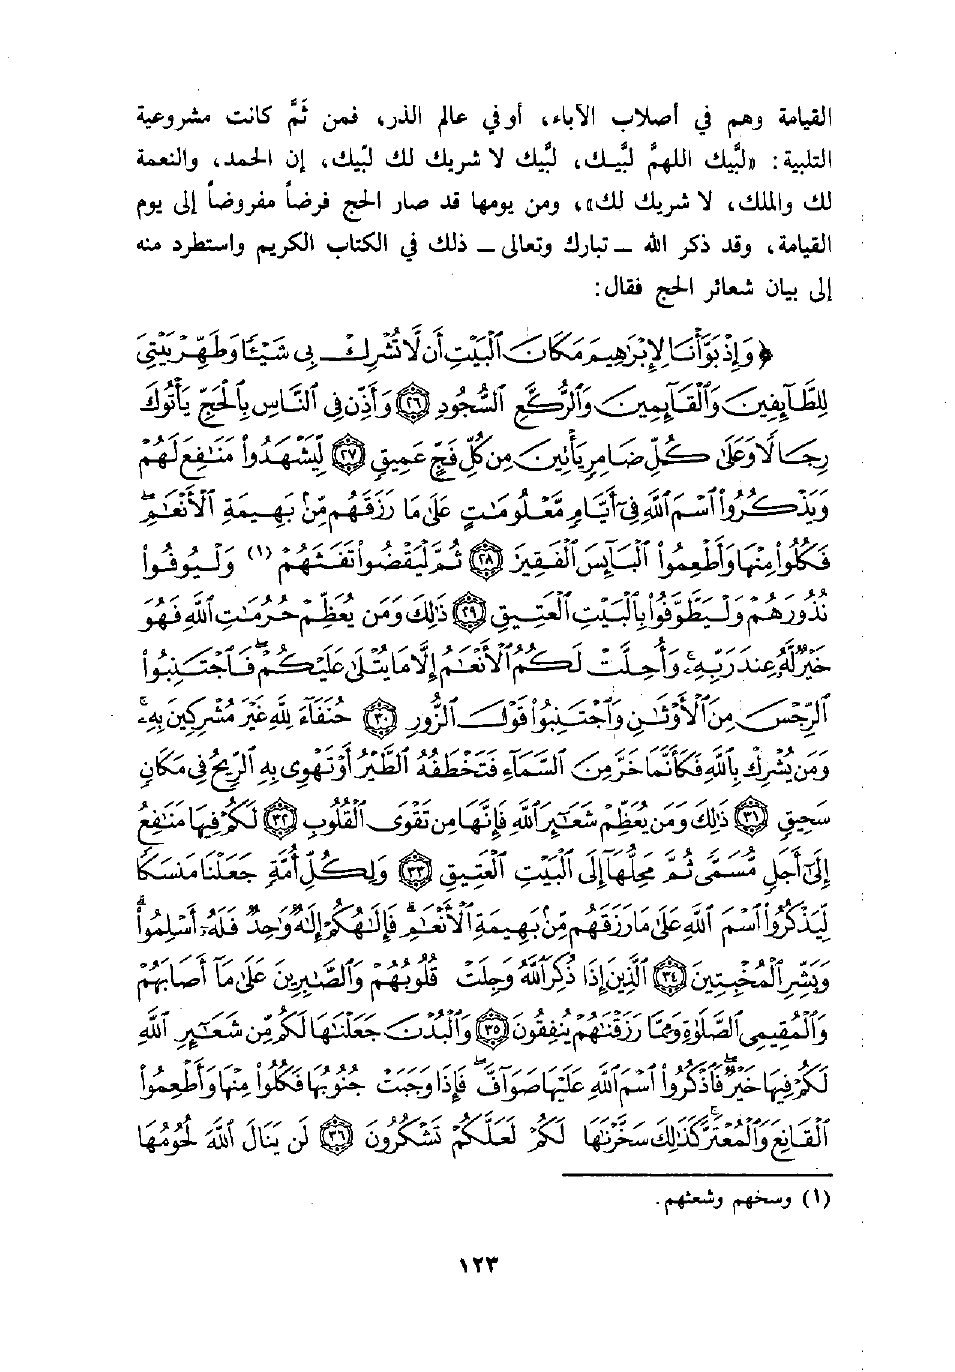 القيامة وهم في أصلاب الآباء، أو في عالم الذر، فمن ثَمَّ كانت مشروعية
التلبية: «لبَّيك اللهمَّ لبَّيـك، لبَّيك لا شريك لك لبّيك، إن الحمد، والنعمة
لك والملك، لا شريك لك»، ومن يومها قد صار الحج فرضاً مفروضاً إلى يوم
القيامة، وقد ذكر الله ــ تبارك وتعالى ــ ذلك في الكتاب الكريم واستطرد منه
إلى بيان شعائر الحج فقال:
﴿وَإِذْ بَوَّأْنَا لِإِبْرَٰهِيمَ مَكَانَ ٱلْبَيْتِ أَن لَّا تُشْرِكْ بِى شَيْـًٔا وَطَهِّرْ بَيْتِىَ
لِلطَّآئِفِينَ وَٱلْقَآئِمِينَ وَٱلرُّكَّعِ ٱلسُّجُودِ ٢٦ وَأَذِّن فِى ٱلنَّاسِ بِٱلْحَجِّ يَأْتُوكَ
رِجَالًا وَعَلَىٰ كُلِّ ضَامِرٍ يَأْتِينَ مِن كُلِّ فَجٍّ عَمِيقٍ ٢٧ لِّيَشْهَدُوا۟ مَنَٰفِعَ لَهُمْ
وَيَذْكُرُوا۟ ٱسْمَ ٱللَّهِ فِىٓ أَيَّامٍ مَّعْلُومَٰتٍ عَلَىٰ مَا رَزَقَهُم مِّنۢ بَهِيمَةِ ٱلْأَنْعَٰمِ ۖ
فَكُلُوا۟ مِنْهَا وَأَطْعِمُوا۟ ٱلْبَآئِسَ ٱلْفَقِيرَ ٢٨ ثُمَّ لْيَقْضُوا۟ تَفَثَهُمْ (١) وَلْيُوفُوا۟
نُذُورَهُمْ وَلْيَطَّوَّفُوا۟ بِٱلْبَيْتِ ٱلْعَتِيقِ ٢٩ ذَٰلِكَ وَمَن يُعَظِّمْ حُرُمَٰتِ ٱللَّهِ فَهُوَ
خَيْرٌ لَّهُۥ عِندَ رَبِّهِۦ ۗ وَأُحِلَّتْ لَكُمُ ٱلْأَنْعَٰمُ إِلَّا مَا يُتْلَىٰ عَلَيْكُمْ ۖ فَٱجْتَنِبُوا۟
ٱلرِّجْسَ مِنَ ٱلْأَوْثَٰنِ وَٱجْتَنِبُوا۟ قَوْلَ ٱلزُّورِ ٣٠ حُنَفَآءَ لِلَّهِ غَيْرَ مُشْرِكِينَ بِهِۦ ۚ
وَمَن يُشْرِكْ بِٱللَّهِ فَكَأَنَّمَا خَرَّ مِنَ ٱلسَّمَآءِ فَتَخْطَفُهُ ٱلطَّيْرُ أَوْ تَهْوِى بِهِ ٱلرِّيحُ فِى مَكَانٍ
سَحِيقٍ ٣١ ذَٰلِكَ وَمَن يُعَظِّمْ شَعَٰٓئِرَ ٱللَّهِ فَإِنَّهَا مِن تَقْوَى ٱلْقُلُوبِ ٣٢ لَكُمْ فِيهَا مَنَٰفِعُ
إِلَىٰٓ أَجَلٍ مُّسَمًّى ثُمَّ مَحِلُّهَآ إِلَى ٱلْبَيْتِ ٱلْعَتِيقِ ٣٣ وَلِكُلِّ أُمَّةٍ جَعَلْنَا مَنسَكًا
لِّيَذْكُرُوا۟ ٱسْمَ ٱللَّهِ عَلَىٰ مَا رَزَقَهُم مِّنۢ بَهِيمَةِ ٱلْأَنْعَٰمِ ۗ فَإِلَٰهُكُمْ إِلَٰهٌ وَٰحِدٌ فَلَهُۥٓ أَسْلِمُوا۟ ۗ
وَبَشِّرِ ٱلْمُخْبِتِينَ ٣٤ ٱلَّذِينَ إِذَا ذُكِرَ ٱللَّهُ وَجِلَتْ قُلُوبُهُمْ وَٱلصَّٰبِرِينَ عَلَىٰ مَآ أَصَابَهُمْ
وَٱلْمُقِيمِى ٱلصَّلَوٰةِ وَمِمَّا رَزَقْنَٰهُمْ يُنفِقُونَ ٣٥ وَٱلْبُدْنَ جَعَلْنَٰهَا لَكُم مِّن شَعَٰٓئِرِ ٱللَّهِ
لَكُمْ فِيهَا خَيْرٌ ۖ فَٱذْكُرُوا۟ ٱسْمَ ٱللَّهِ عَلَيْهَا صَوَآفَّ ۖ فَإِذَا وَجَبَتْ جُنُوبُهَا فَكُلُوا۟ مِنْهَا وَأَطْعِمُوا۟
ٱلْقَانِعَ وَٱلْمُعْتَرَّ ۚ كَذَٰلِكَ سَخَّرْنَٰهَا لَكُمْ لَعَلَّكُمْ تَشْكُرُونَ ٣٦ لَن يَنَالَ ٱللَّهَ لُحُومُهَا
(١) وسخهم وشعثهم.
١٢٣